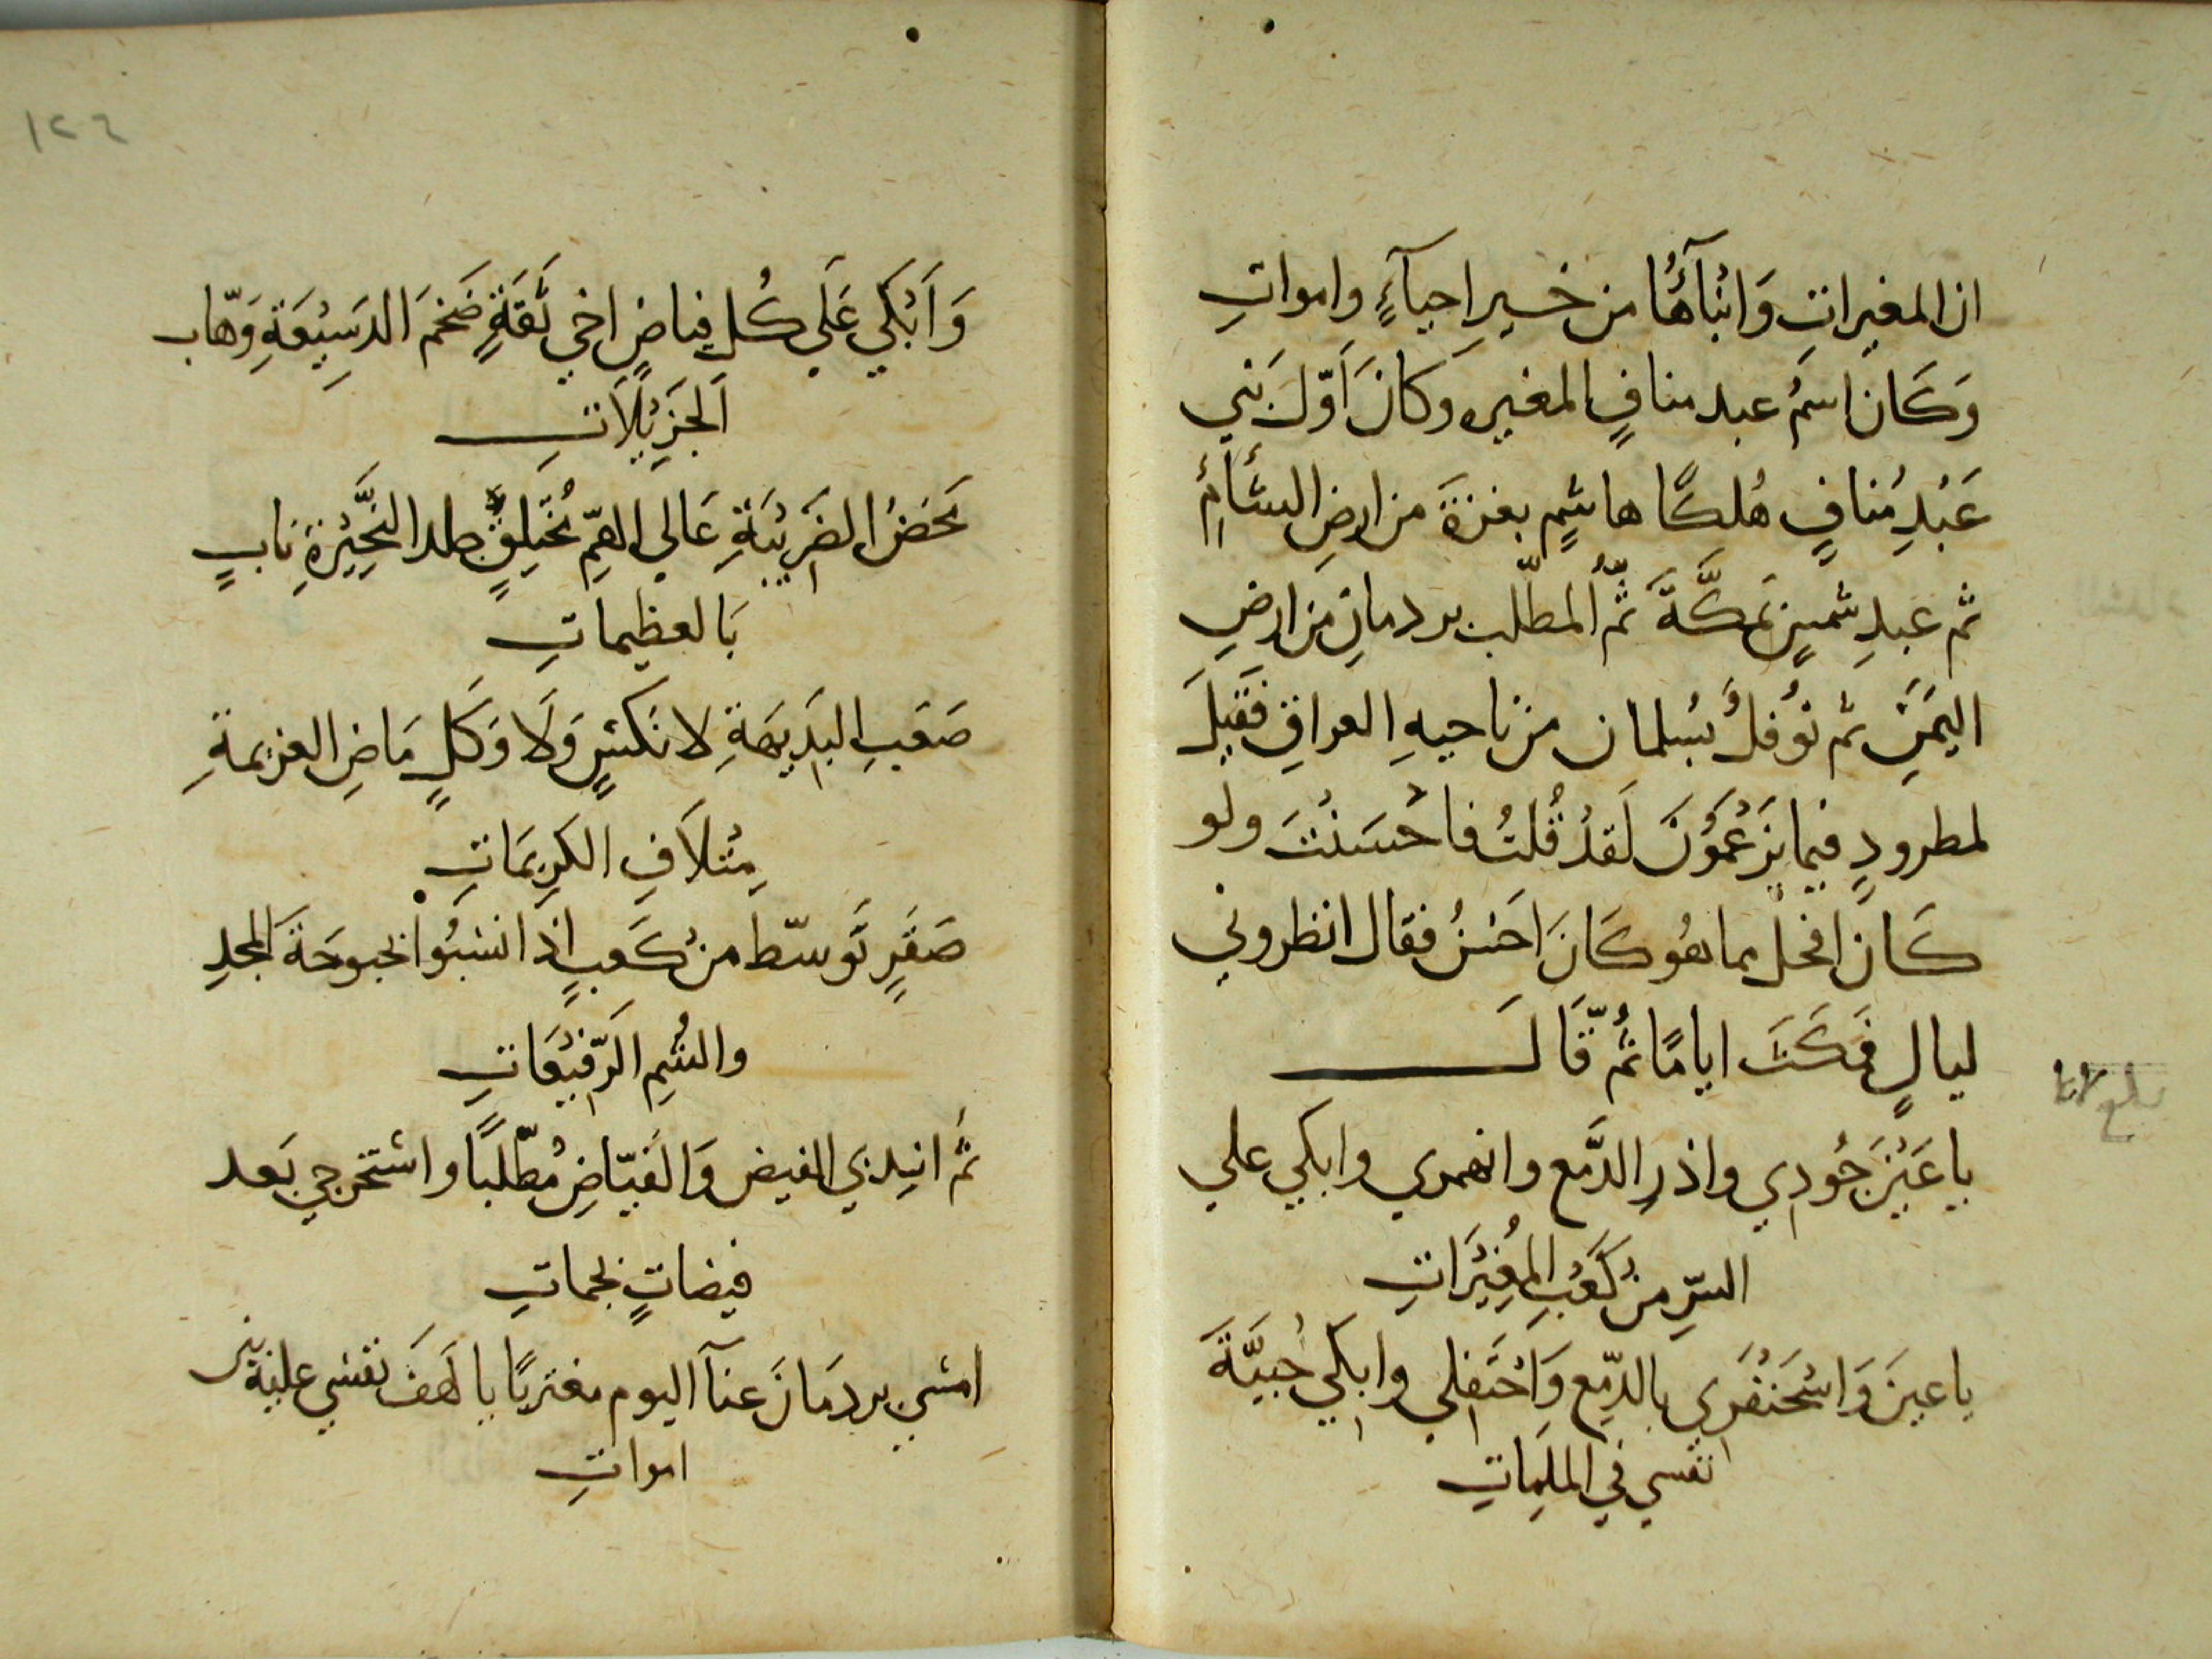 ان المغيراتِ وَابْنآؤُهَا من خيرِ احيآءٍ وامواتِ
وَكَان اسمُ عبد منافٍ المغيره وكانَ اَوّلَ بَني
عَبْدِ مُنافٍ هُلكًا هاشمٍ بغزةَ من ارضِ الشأمِ
ثم عبدِ شمسٍ بمَكَّةَ ثمَّ المطّلب بردمان مِن ارضِ
اليَمَنِ ثم نوُفلُ بسُلمان من ناحيهِ العراقِ فقيلَ
لمطرودٍ فيما يَزعُمُونَ لَقدْ قُلتُ فاحُسَنْتَ ولو
كَان افحل مما هُو كَانَ احَسْنُ فقال انظروني
ليالٍ فمَكَثَ ايامًا ثُمّ قَالَ
يا عَيْنَ جُودي واذرِ الدَّمع وانهمري وابكي علي
السّرِ منْ كَعْبِ المُغِيْرَاتِ
يا عينَ وَاسْحَنْفَري بالدّمِع وَاحْتَفلي وابِكي خُبيَّةَ
نفسي في الملِمَاتِ
بلغ
١٢٦
وَاَبْكي عَلَي كُلِ فياضٍ اخي ثقَةٍ ضَخمَ الدَسِيْعَةِ وَهّاب
اَلجَزِيْلاَتِ
مَحَضُ الضَرِيْبَةِ عَالي الهمِّ مُخَتلِقٍ جلد النَحِّيْزةِ نَابٍ
بَالعظيماتِ
صَعَبِ البَدِيهَةِ لا نَكسٍ وَلَا وَكَلٍ مَاضِ العزيمةِ
مِتْلاَفِ الكَرِيمَاتِ
صَقَرٍ تَوسّط منْ كَعبٍ اذا انسَبُوا بحبوحَةَ المجدِ
والشُمِ الَرّفيْعَاتِ
ثمَّ اندبي الفيض وَالفَيّاضِ مُطّلبًا واستخرجي بَعد
فيضاتٍ بجماتِ
امسَي بردمَانَ عنآ اليوم مغتربًا يا لَهفَ نفسي عليْهِ بين
امواتِ